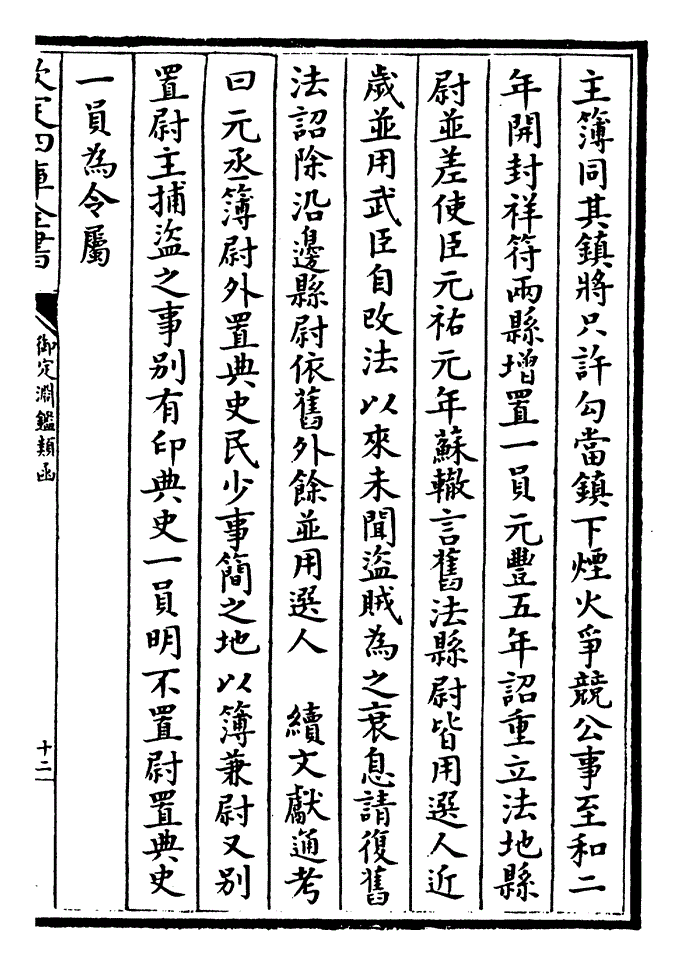 主簿同其鎮將只許勾當鎮下煙火爭競公事至和二
年開封祥符兩縣增置一員元豐五年詔重立法地縣
尉並差使臣元祐元年蘇轍言舊法縣尉皆用選人近
歲並用武臣自改法以來未聞盜賊為之衰息請復舊
法詔除沿邊縣尉依舊外餘並用選人 續文獻通考
曰元丞簿尉外置典史民少事簡之地以簿兼尉又别
置尉主捕盜之事别有印典史一員明不置尉置典史
一員為令屬
欽定四庫全書
御定淵鑑類函
十二